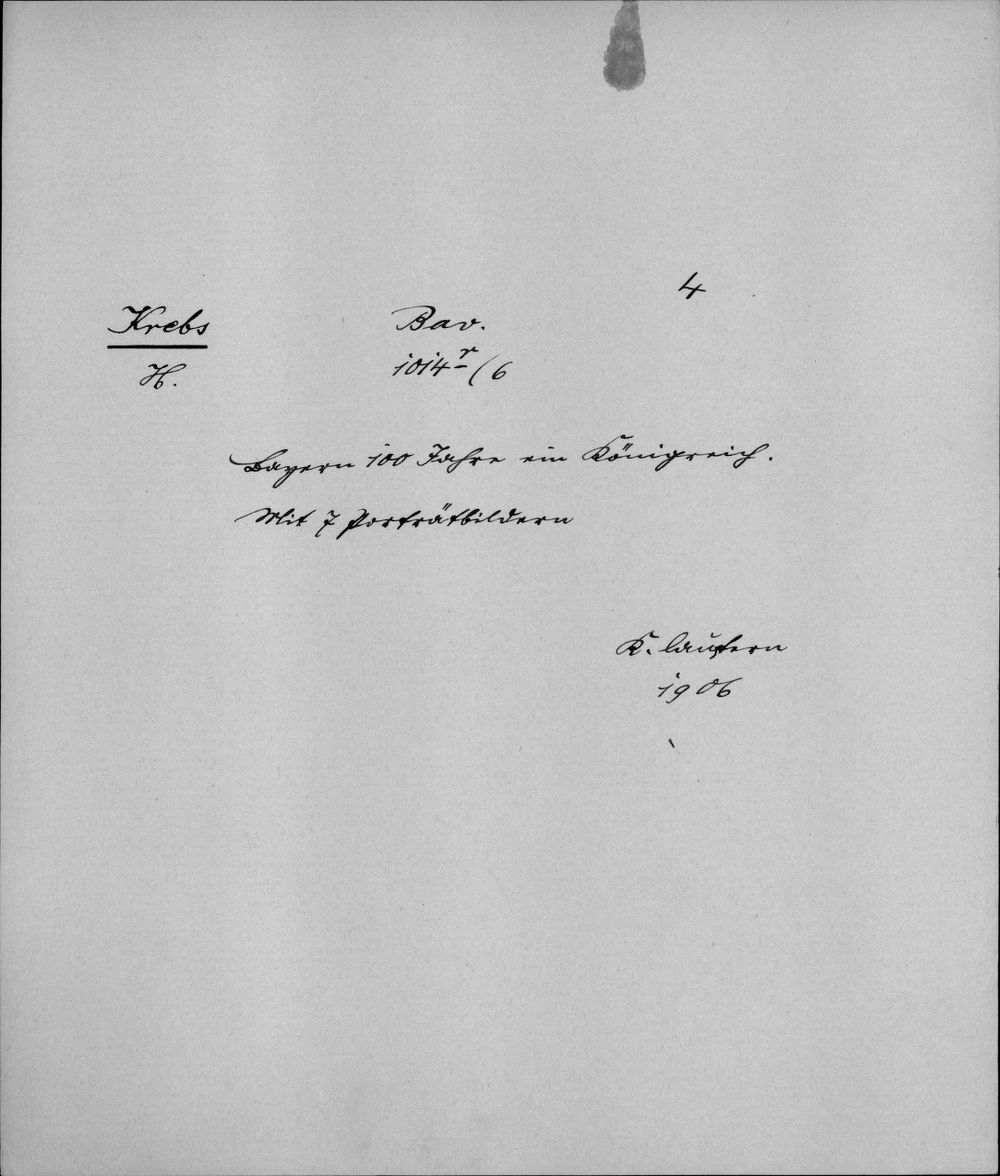 4
Krebs
Bav.
H.
1014ʳ (6
Bayern 100 Jahre ein Königreich.
Mit 7 Porträtbildern
K. lautern
1906